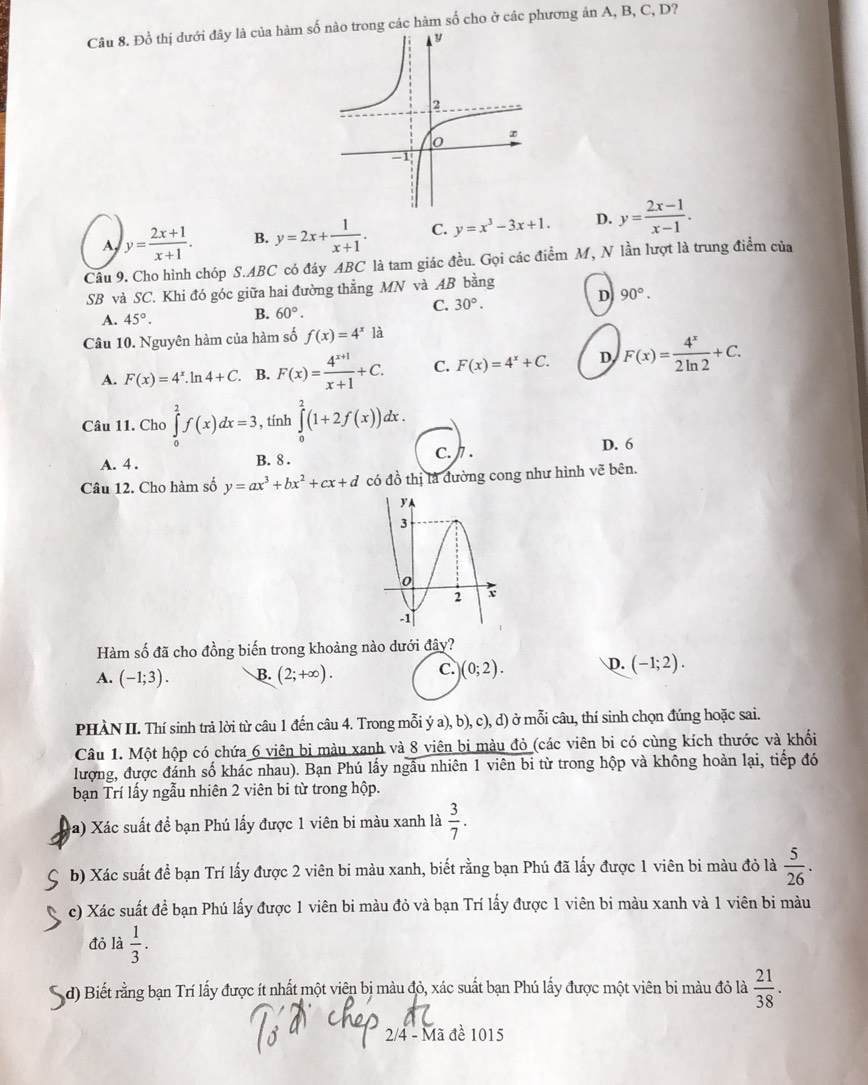 Câu 8. Đồ thị dưới đây là của hàm số nào trong các hàm số cho ở các phương án A, B, C, D?
y
2
O
x
-1
A. y = (2x+1)/(x+1). B. y = 2x + 1/(x+1). C. y = x³ − 3x + 1. D. y = (2x−1)/(x−1).
Câu 9. Cho hình chóp S.ABC có đáy ABC là tam giác đều. Gọi các điểm M, N lần lượt là trung điểm của
SB và SC. Khi đó góc giữa hai đường thẳng MN và AB bằng
A. 45°. B. 60°. C. 30°. D. 90°.
Câu 10. Nguyên hàm của hàm số f(x) = 4ˣ là
A. F(x) = 4ˣ.ln 4 + C. B. F(x) = 4ˣ⁺¹/(x+1) + C. C. F(x) = 4ˣ + C. D. F(x) = 4ˣ/(2 ln 2) + C.
Câu 11. Cho ∫₀² f(x)dx = 3, tính ∫₀² (1 + 2f(x))dx.
A. 4. B. 8. C. 7. D. 6
Câu 12. Cho hàm số y = ax³ + bx² + cx + d có đồ thị là đường cong như hình vẽ bên.
y
3
O
2
x
-1
Hàm số đã cho đồng biến trong khoảng nào dưới đây?
A. (−1;3). B. (2;+∞). C. (0;2). D. (−1;2).
PHẦN II. Thí sinh trả lời từ câu 1 đến câu 4. Trong mỗi ý a), b), c), d) ở mỗi câu, thí sinh chọn đúng hoặc sai.
Câu 1. Một hộp có chứa 6 viên bi màu xanh và 8 viên bi màu đỏ (các viên bi có cùng kích thước và khối
lượng, được đánh số khác nhau). Bạn Phú lấy ngẫu nhiên 1 viên bi từ trong hộp và không hoàn lại, tiếp đó
bạn Trí lấy ngẫu nhiên 2 viên bi từ trong hộp.
a) Xác suất để bạn Phú lấy được 1 viên bi màu xanh là 3/7.
S b) Xác suất để bạn Trí lấy được 2 viên bi màu xanh, biết rằng bạn Phú đã lấy được 1 viên bi màu đỏ là 5/26.
S c) Xác suất để bạn Phú lấy được 1 viên bi màu đỏ và bạn Trí lấy được 1 viên bi màu xanh và 1 viên bi màu
đỏ là 1/3.
S d) Biết rằng bạn Trí lấy được ít nhất một viên bi màu đỏ, xác suất bạn Phú lấy được một viên bi màu đỏ là 21/38.
chép
2/4 - Mã đề 1015